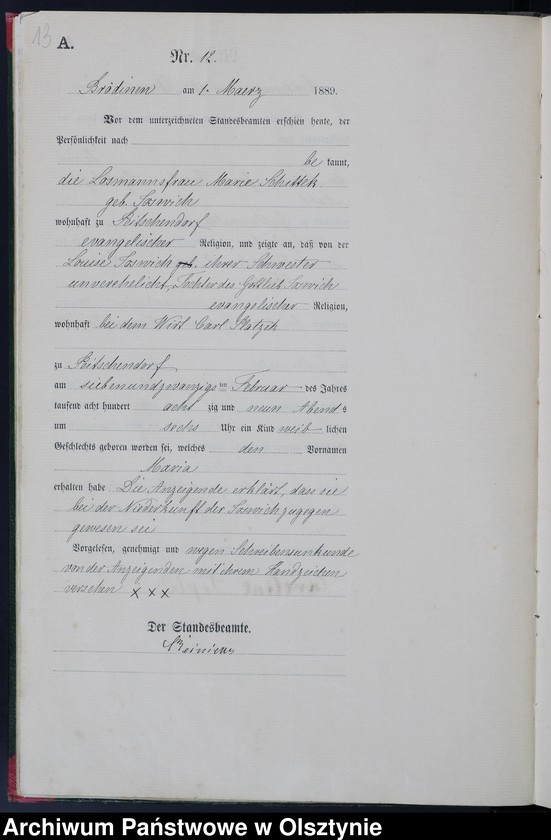 13 A.
Nr. 12.
Brödinen am 1. Maerz 1889.
Vor dem unterzeichneten Standesbeamten erschien heute, der
Persönlichkeit nach
be kannt,
die Losmannsfrau Marie Schittek
geb. Soswich
wohnhaft zu Ritschendorf
evangelischer Religion, und zeigte an, daß von der
Louise Soswich geb. ihrer Schwester
unverehelicht, Tochter des Gottlieb Soswich
evangelischer Religion,
wohnhaft bei dem Wirt Carl
zu Ritschendorf
am siebenundzwanzigsten Februar des Jahres
tausend acht hundert acht zig und neun Abends
um sechs Uhr ein Kind weib lichen
Geschlechts geboren worden sei, welches den Vornamen
Maria
erhalten habe Die Anzeigende erklärt, dass sie
bei der Niederkunft der Soswich zugegen
gewesen sei
Vorgelesen, genehmigt und wegen Schreibensunkunde
von der Anzeigenden mit ihrem Handzeichen
versehen x x x
Der Standesbeamte.
Archiwum Państwowe w Olsztynie